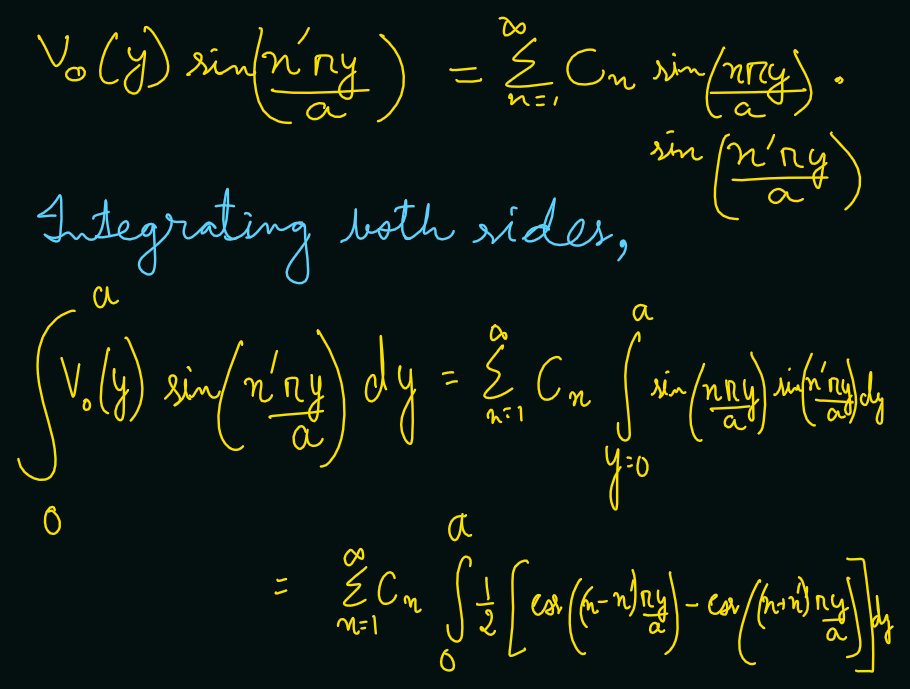 V₀(y) sin(n'πy/a) = ∑_{n=1}^{∞} Cₙ sin(nπy/a) ·
sin(n'πy/a)
Integrating both sides,
∫_{0}^{a} V₀(y) sin(n'πy/a) dy = ∑_{n=1}^{∞} Cₙ ∫_{y=0}^{a} sin(nπy/a) sin(n'πy/a) dy
= ∑_{n=1}^{∞} Cₙ ∫_{0}^{a} 1/2 [cos((n-n')πy/a) - cos((n+n')πy/a)] dy